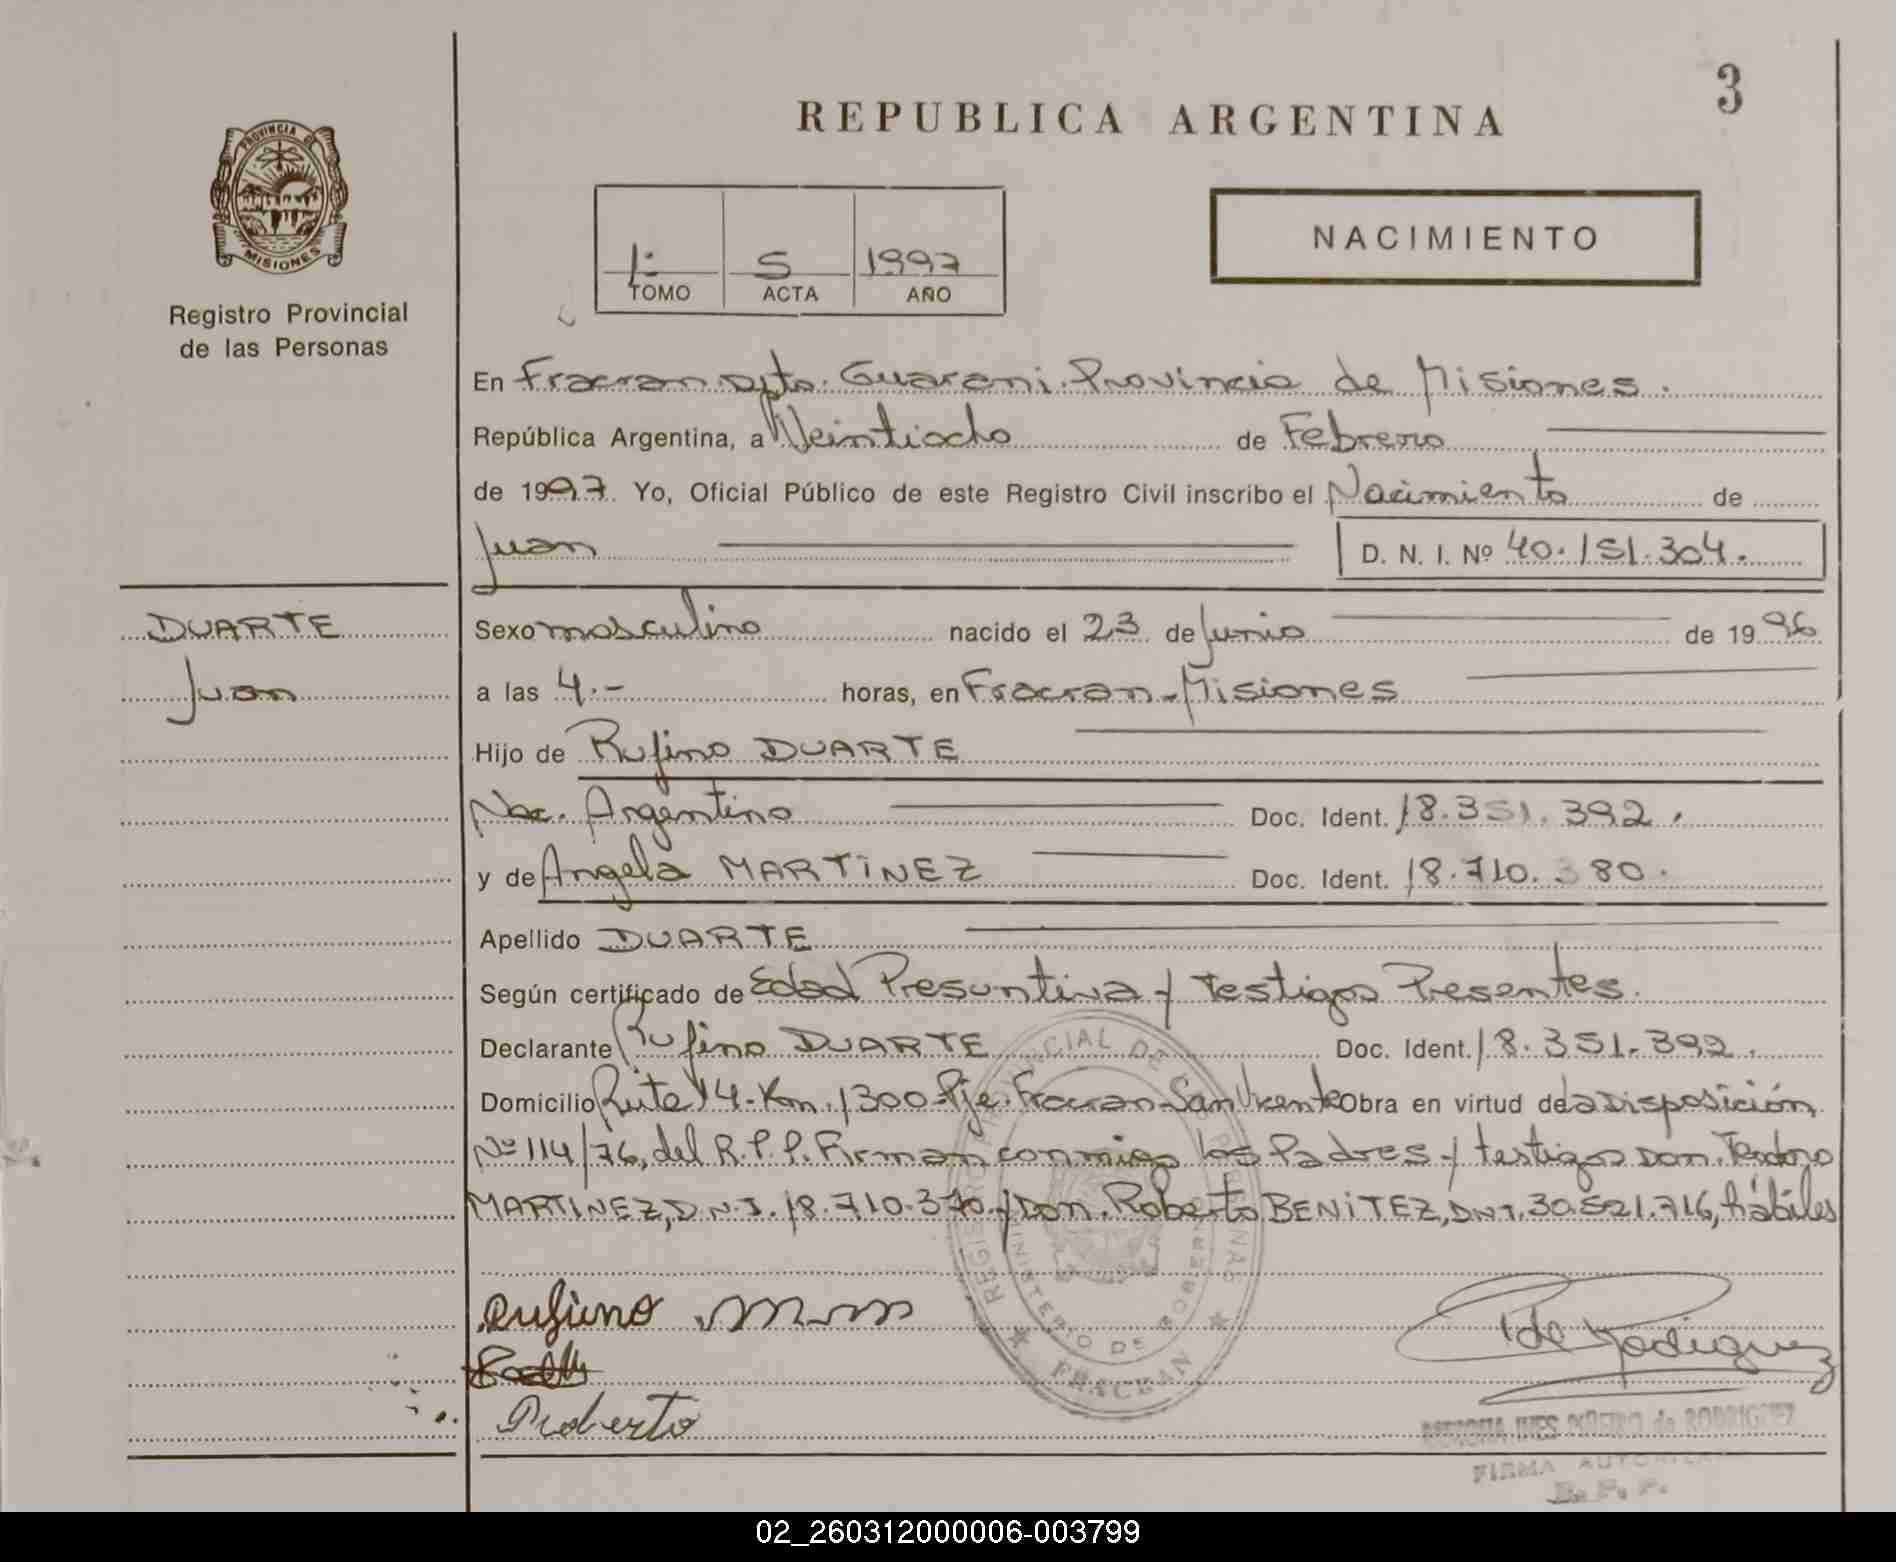 3
REPUBLICA ARGENTINA
PROVINCIA DE
MISIONES
Registro Provincial
de las Personas
1: 5 1997
TOMO ACTA AÑO
NACIMIENTO
En Fracran Dpto. Guarani. Provincia de Misiones.
República Argentina, a Veintiocho de Febrero
de 1997. Yo, Oficial Público de este Registro Civil inscribo el Nacimiento de
Juan D. N. I. Nº 40.151.304.
DUARTE Sexo masculino nacido el 23 de Junio de 1996
Juan a las 4.- horas, en Fracran-Misiones
Hijo de Rufino DUARTE
Nac. Argentino Doc. Ident. 18.351.392.
y de Angela MARTINEZ Doc. Ident. 18.710.380.
Apellido DUARTE
Según certificado de Edad Presuntiva y Testigos Presentes.
Declarante Rufino DUARTE Doc. Ident. 18.351.392.
Domicilio Ruta 14-Km. 1300-Pje. Fracran-San Vicente Obra en virtud de la Disposición
Nº 114/76, del R.P.P. Firman conmigo los Padres y testigos Don. Teodoro
MARTINEZ, D.N.I. 18.710.370.y Don. Roberto BENITEZ, DNI. 30.521.716, hábiles
REGISTRO PROVINCIAL DE LAS PERSONAS
MINISTERIO DE GOBIERNO
FRACRAN
Rufino
Roberto
P de Rodriguez
INES PIÑEIRO de RODRIGUEZ
FIRMA AUTORIZADA
R. P. P.
02_260312000006-003799